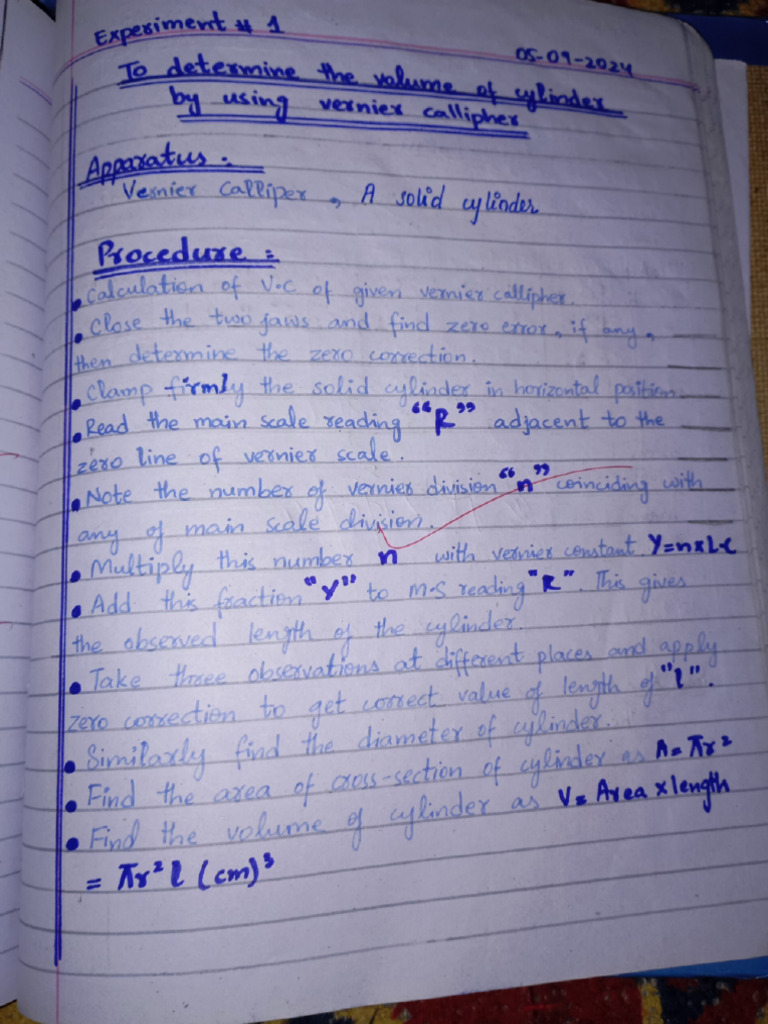 Experiment # 1
05-09-2024
To determine the volume of cylinder
by using vernier callipher
Apparatus :
Vernier Calliper , A solid cylinder
Procedure :
• Calculation of V.C of given vernier callipher.
• Close the two jaws and find zero error, if any,
then determine the zero correction.
• Clamp firmly the solid cylinder in horizontal position.
• Read the main scale reading "R" adjacent to the
zero line of vernier scale.
• Note the number of vernier division "n" coinciding with
any of main scale division.
• Multiply this number n with vernier constant Y=n×L.C
• Add this fraction "Y" to M.S reading "R". This gives
the observed length of the cylinder.
• Take three observations at different places and apply
zero correction to get correct value of length of "l".
• Similarly find the diameter of cylinder.
• Find the area of cross-section of cylinder as A= πr²
• Find the volume of cylinder as V= Area × length
= πr² l (cm)³